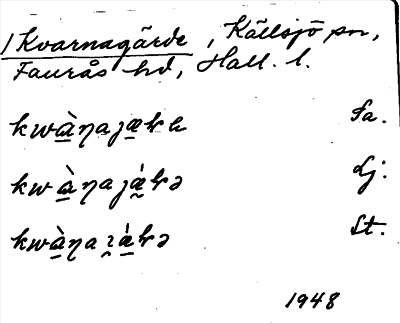 /Kvarnagärde, Källsjö sn,
Faurås hd, Hall. l.
kwà̲ŋajæ̲ɽɐ fa.
kwà̲ŋajǽ̲ɽə dj.
kwà̲ŋaɿǽ̲ɽə St.
1948